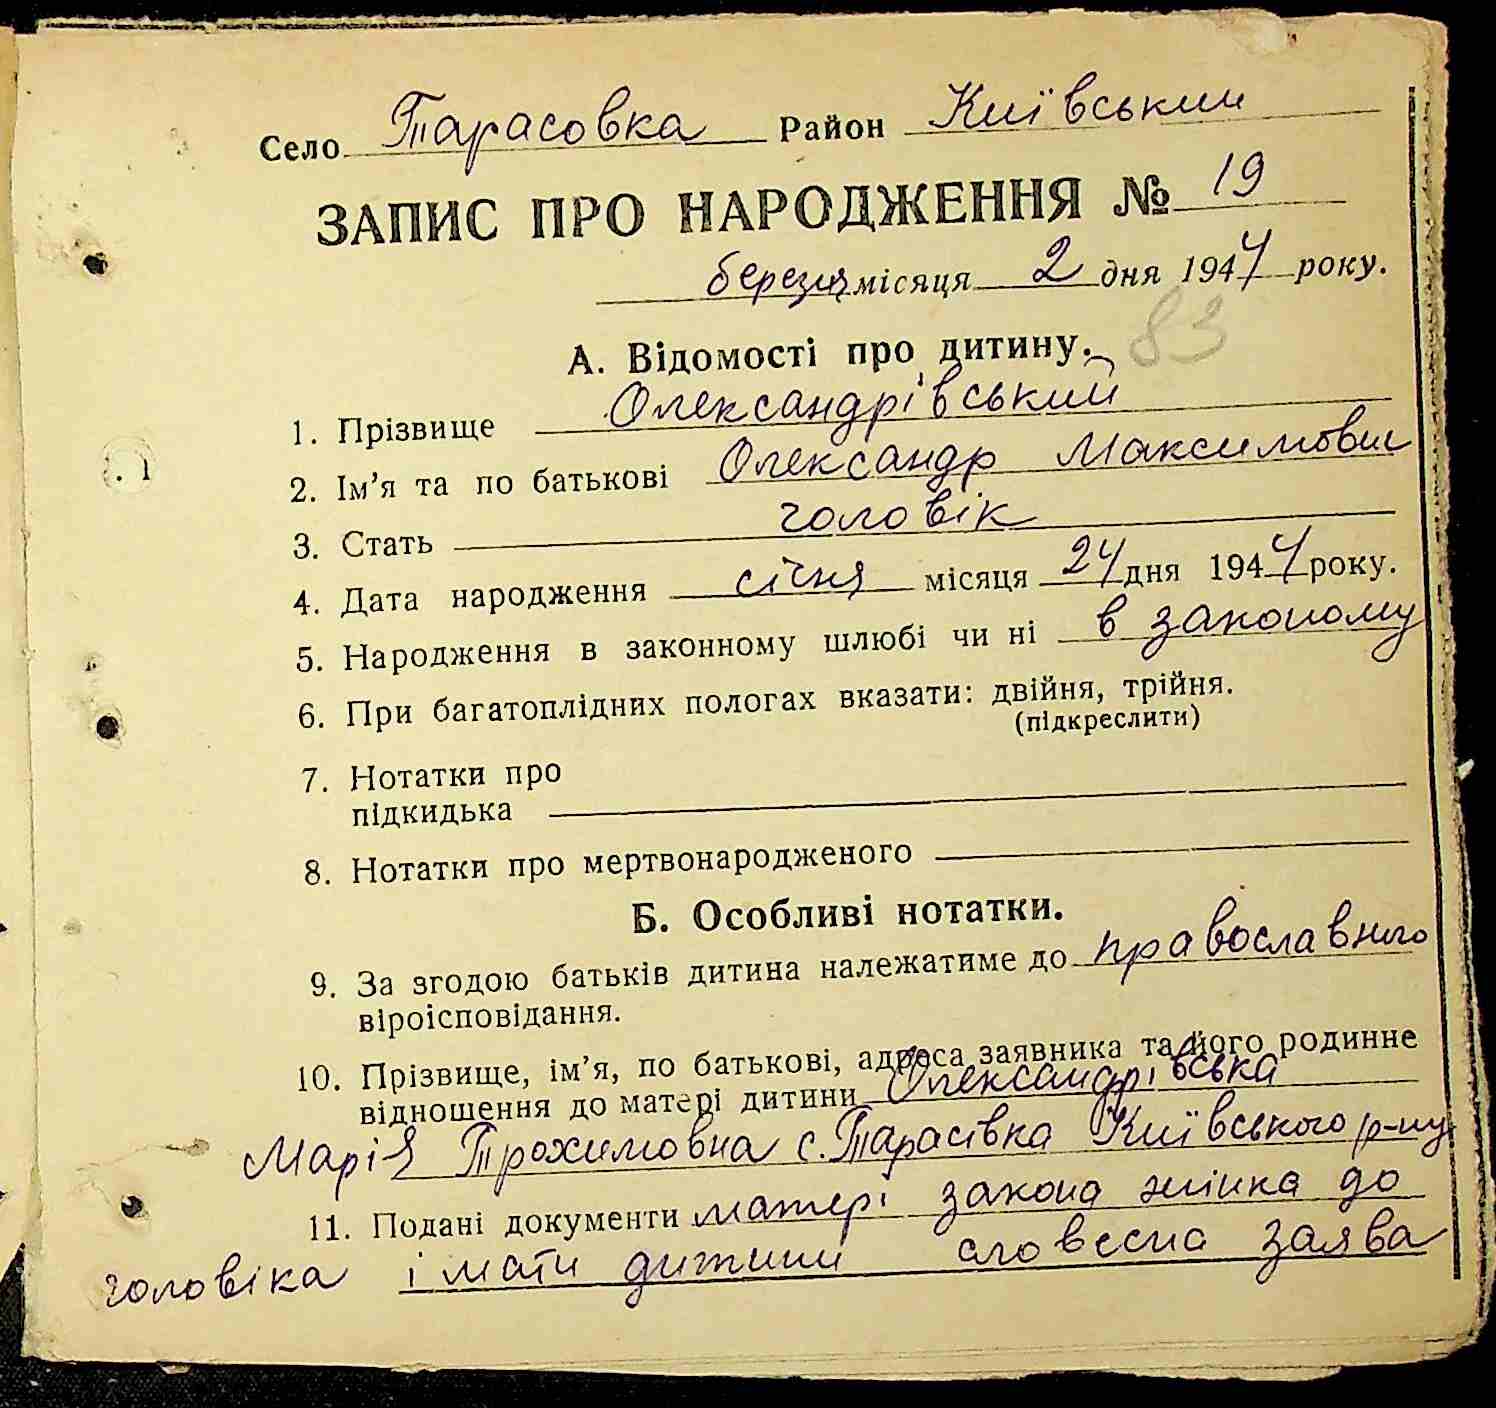 Село Тарасовка Район Київський
ЗАПИС ПРО НАРОДЖЕННЯ № 19
березня місяця 2 дня 1944 року.
83
А. Відомості про дитину.
1. Прізвище Олександрівський
2. Ім'я та по батькові Олександр Максимович
3. Стать чоловік
4. Дата народження січня місяця 24 дня 1944 року.
5. Народження в законному шлюбі чи ні в законому
6. При багатоплідних пологах вказати: двійня, трійня.
(підкреслити)
7. Нотатки про
підкидька
8. Нотатки про мертвонародженого
Б. Особливі нотатки.
9. За згодою батьків дитина належатиме до православного
віроісповідання.
10. Прізвище, ім'я, по батькові, адреса заявника та його родинне
відношення до матері дитини Олександрівська
Марія Трохимовна с. Тарасівка Київського р-ну
11. Подані документи матері закона жінка до
чоловіка і мати дитини словесна заява